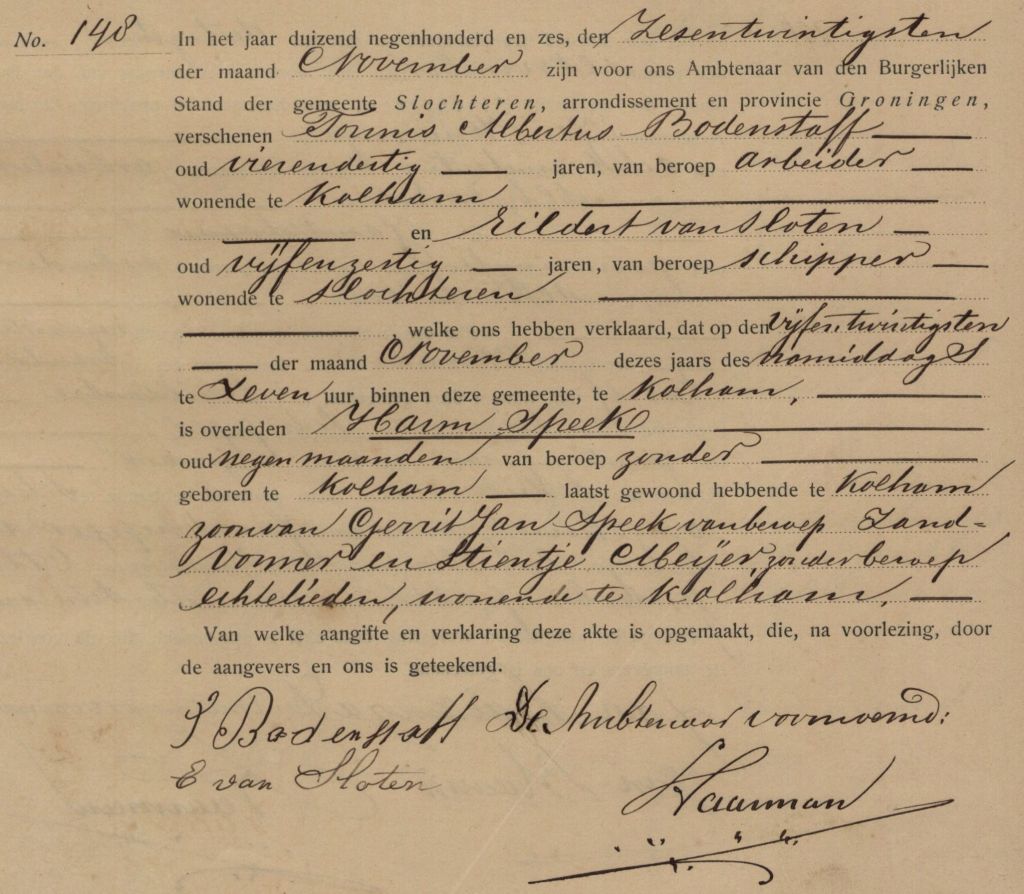 No. 148
In het jaar duizend negenhonderd en zes, den Zesentwintigsten
der maand November zijn voor ons Ambtenaar van den Burgerlijken
Stand der gemeente Slochteren, arrondissement en provincie Groningen,
verschenen Tonnis Albertus Bodenstaff
oud vierendertig jaren, van beroep arbeider
wonende te Kolham
en Eildert van Sloten
oud vijfenzestig jaren, van beroep schipper
wonende te Slochteren
, welke ons hebben verklaard, dat op den Vijfentwintigsten
der maand November dezes jaars des namiddags
te Zeven uur, binnen deze gemeente, te Kolham,
is overleden Harm Speek
oud negen maanden van beroep zonder
geboren te Kolham laatst gewoond hebbende te Kolham
zoon van Gerrit Jan Speek van beroep Zand=
vormer en Stientje Meijer, zonder beroep
echtelieden, wonende te Kolham.
Van welke aangifte en verklaring deze akte is opgemaakt, die, na voorlezing, door
de aangevers en ons is geteekend.
Bodenstaff De Ambtenaar voornoemd:
E van Sloten
Haanman